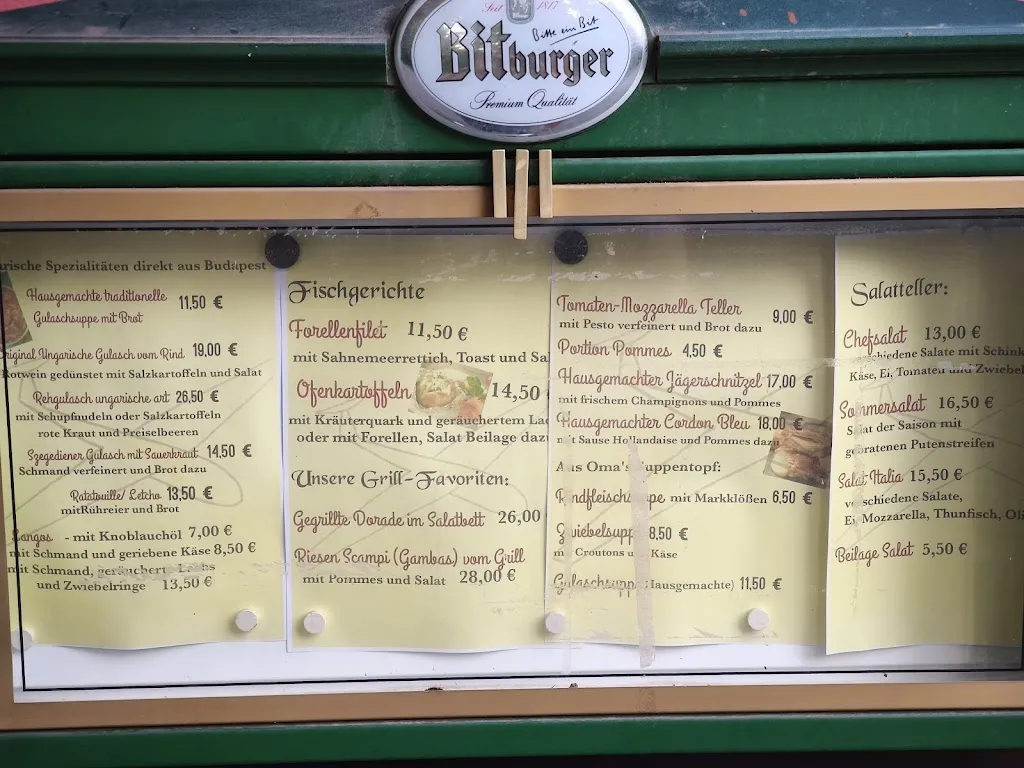 Seit 1817
Bitte ein Bit
Bitburger
Premium Qualität
rische Spezialitäten direkt aus Budapest
Hausgemachte traditionelle 11,50 €
Gulaschsuppe mit Brot
Original Ungarische Gulasch vom Rind 19,00 €
Rotwein gedünstet mit Salzkartoffeln und Salat
Rehgulasch ungarische art 26,50 €
mit Schupfnudeln oder Salzkartoffeln
rote Kraut und Preiselbeeren
Szegediener Gulasch mit Sauerkraut 14,50 €
Schmand verfeinert und Brot dazu
Ratatouille/ Letcho 13,50 €
mitRühreier und Brot
Langos - mit Knoblauchöl 7,00 €
mit Schmand und geriebene Käse 8,50 €
mit Schmand, geräucherte Lachs
und Zwiebelringe 13,50 €
Fischgerichte
Forellenfilet 11,50 €
mit Sahnemeerrettich, Toast und Sal
Ofenkartoffeln 14,50
mit Kräuterquark und geräuchertem Lac
oder mit Forellen, Salat Beilage dazu
Unsere Grill-Favoriten:
Gegrillte Dorade im Salatbett 26,00
Riesen Scampi (Gambas) vom Grill
mit Pommes und Salat 28,00 €
Tomaten-Mozzarella Teller 9,00 €
mit Pesto verfeinert und Brot dazu
Portion Pommes 4,50 €
Hausgemachter Jägerschnitzel 17,00 €
mit frischem Champignons und Pommes
Hausgemachter Cordon Bleu 18,00 €
mit Sause Hollandaise und Pommes dazu
Aus Oma's Suppentopf:
Rindfleischsuppe mit Markklößen 6,50 €
Zwiebelsuppe 8,50 €
mit Croutons und Käse
Gulaschsuppe (Hausgemachte) 11,50 €
Salatteller:
Chefsalat 13,00 €
verschiedene Salate mit Schink
Käse, Ei, Tomaten und Zwiebel
Sommersalat 16,50 €
Salat der Saison mit
gebratenen Putenstreifen
Salat Italia 15,50 €
verschiedene Salate,
Ei, Mozzarella, Thunfisch, Oli
Beilage Salat 5,50 €